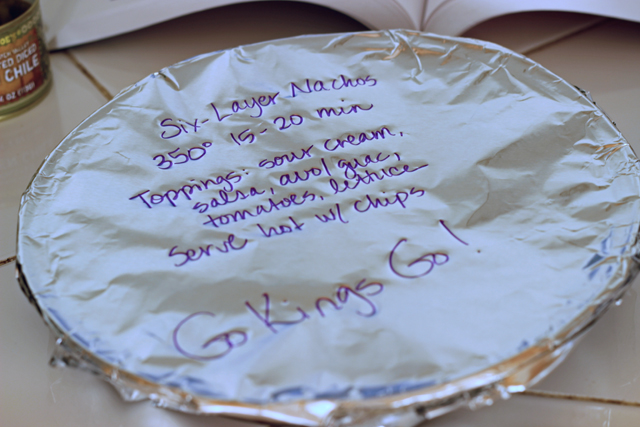 Six-Layer Nachos
350° 15-20 min
Toppings: sour cream,
salsa, avo/guac,
tomatoes, lettuce
Serve hot w/ chips
Go Kings Go!
DICED
CHILE